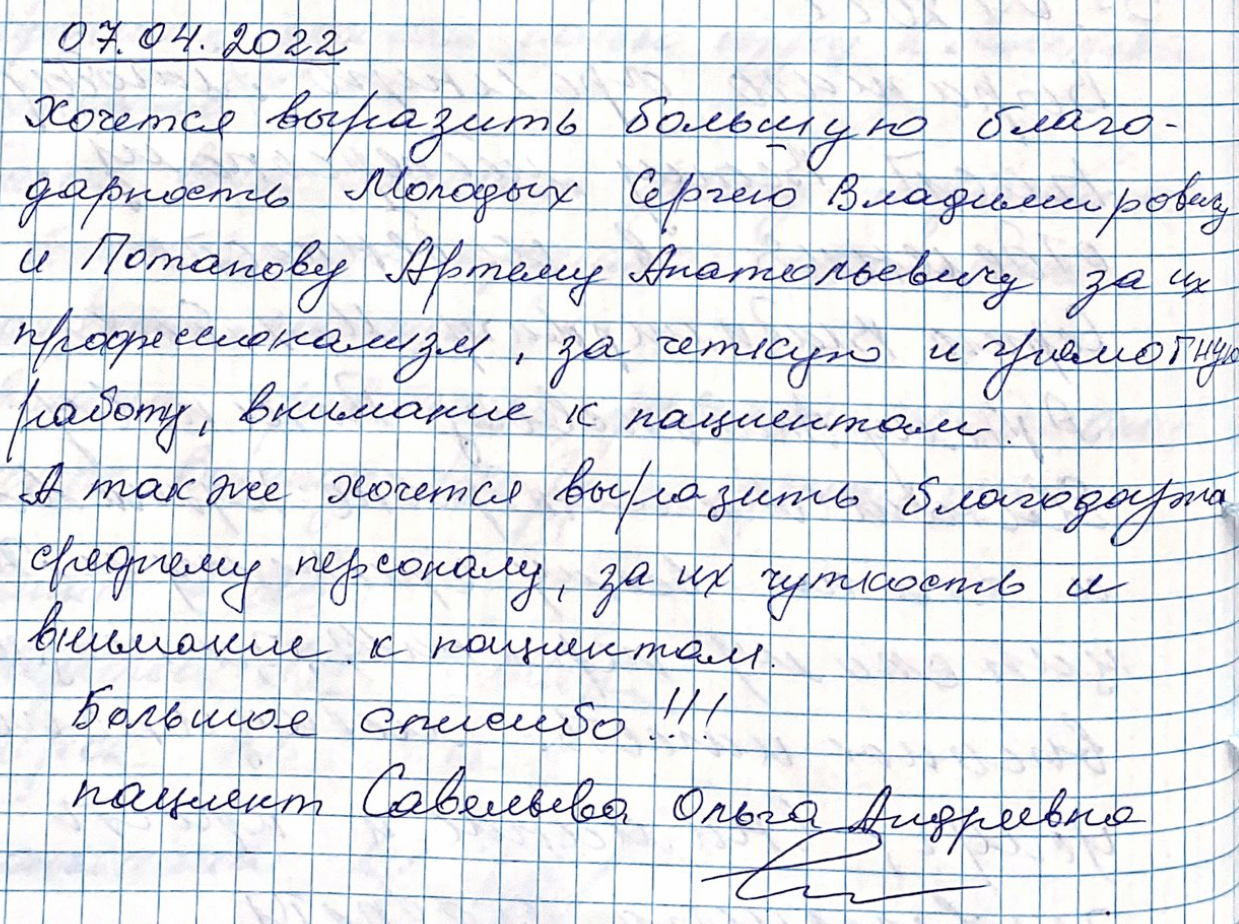 07.04.2022
Хочется выразить большую благо-
дарность Молодых Сергею Владимировичу
и Потапову Артему Анатольевичу за их
профессионализм, за четкую и грамотную
работу, внимание к пациентам.
А также хочется выразить
среднему персоналу, за их чуткость и
внимание к пациентам.
Большое спасибо!!!
пациент Савельева Ольга Андреевна